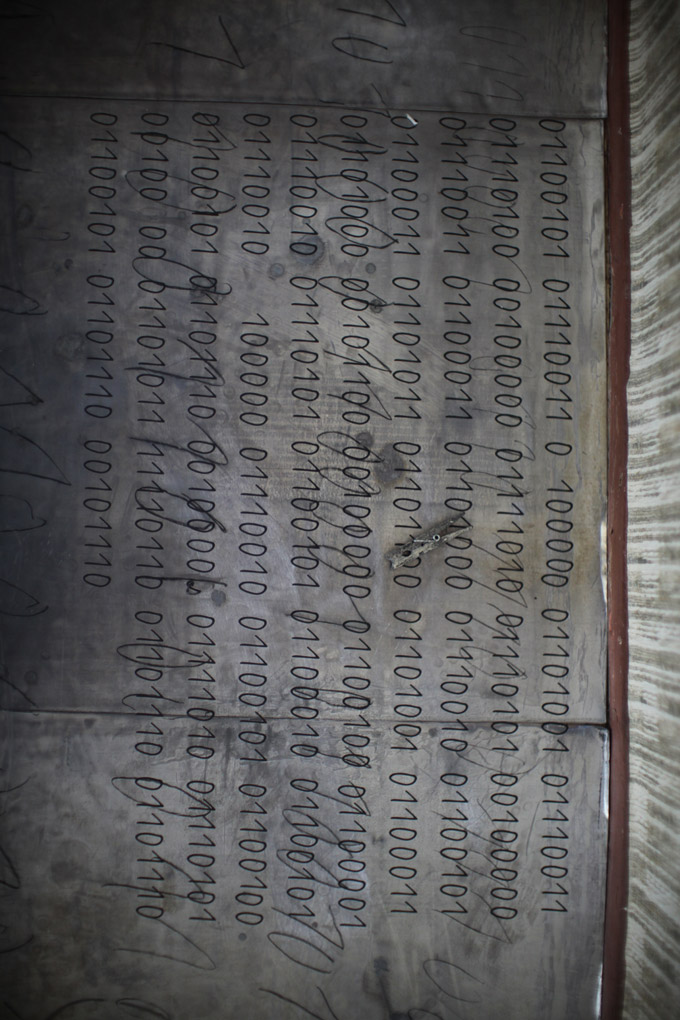 01100101 01110011 0 100000 01101001 01110011
01110100 00100000 01111010 01110101 00100000
01110011 01100011 01101000 01110010 01100101
01100011 01101011 01101100 01101001 01100011
01101000 00101100 00100000 01100100 01100001
01110010 01110101 01100101 01100010 01100101
01110010 100000 01110010 01100101 01100100
01100101 01101110 00100000 01111010 01110101
00100000 01101011 11110110 01101110 01101110
01100101 01101110 00101110